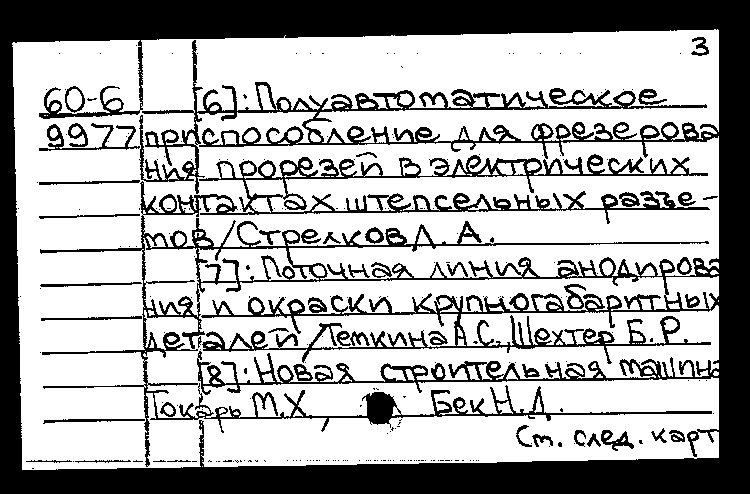 3
60-6 [6]: Полуавтоматическое
9977 приспособление для фрезерова
ния прорезей в электрических
контактах штепсельных разъе-
мов/Стрелков Л. А.
[7]: Поточная линия анодирова
ния и окраски крупногабаритных
деталей/Темкина А.С., Шехтер Б. Р.
[8]: Новая строительная машина
Токарь М.Х., Бек Н.Д.
См. след. карт